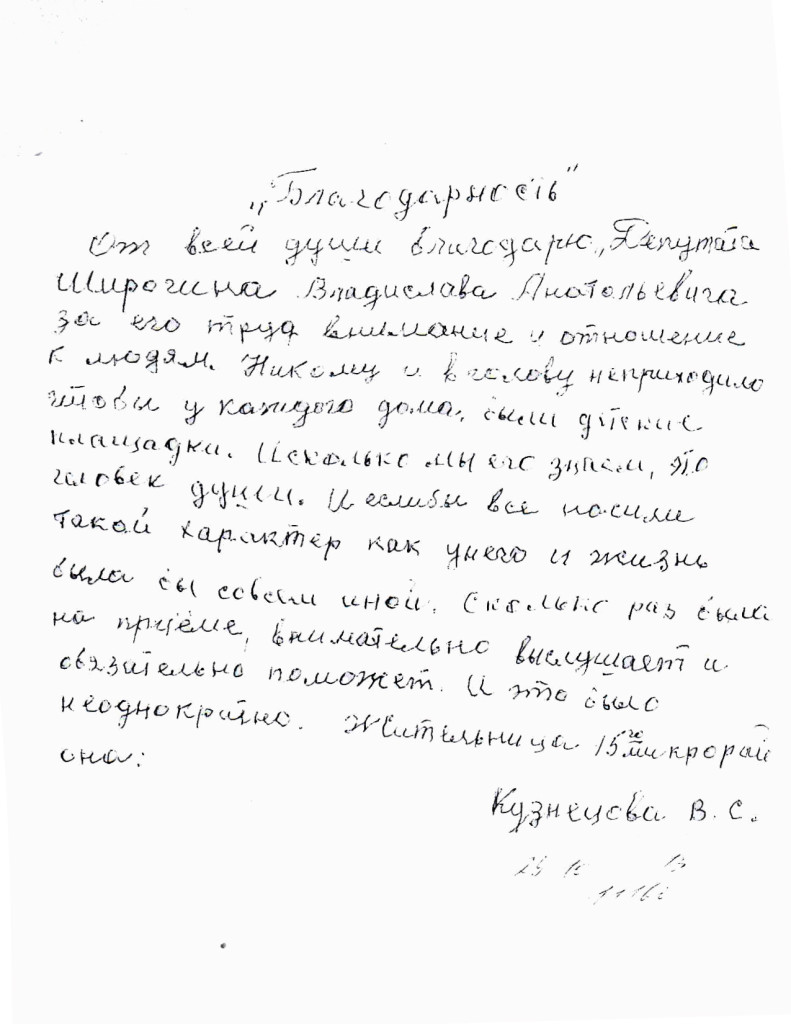 „Благодарность"
От всей души благодарю „Депутата
Широгина Владислава Анатольевича
за его труд внимание и отношение
к людям. Никому и в голову неприходило
чтобы у каждого дома, были детские
площадки. И сколько мы его знаем, это
человек души. И еслибы все носили
такой характер как унего и жизнь
была бы совсем иной. Сколько раз была
на приёме, внимательно выслушает и
обязательно поможет. И это было
неоднократно. Жительница 15го микрорай
она:
Кузнецова В. С.